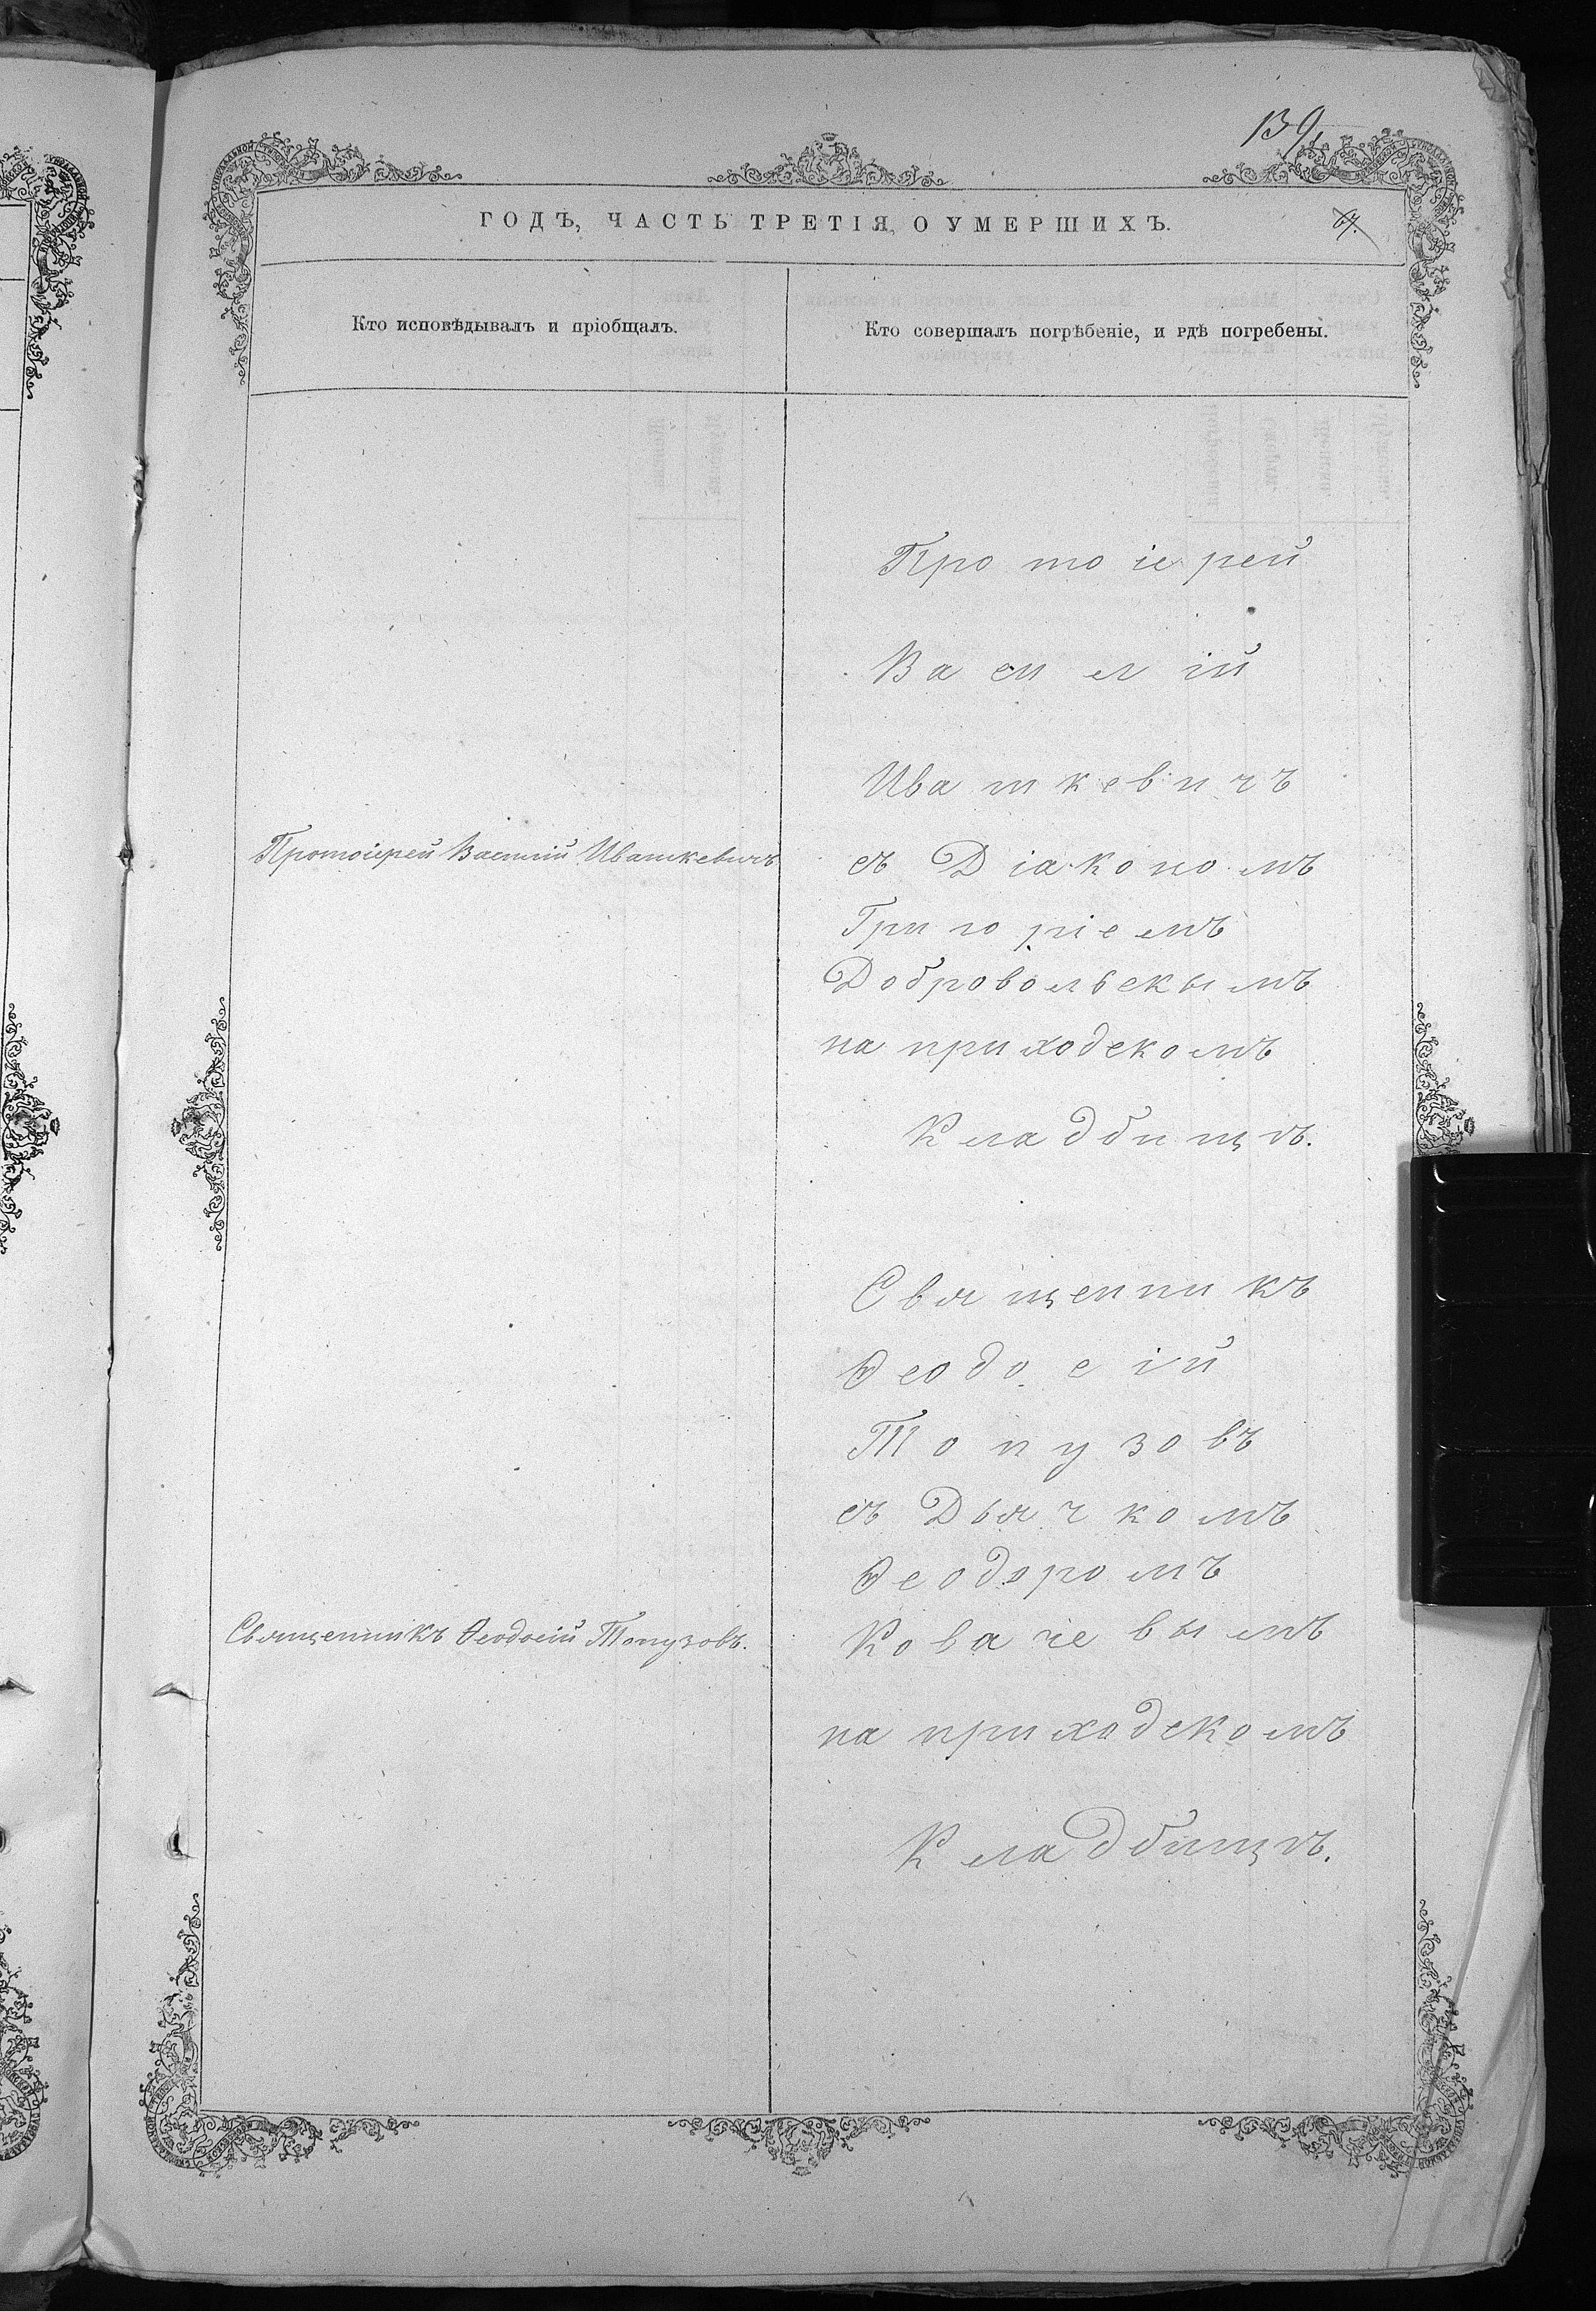 139
ГОДЪ, ЧАСТЬ ТРЕТІЯ, О УМЕРШИХЪ.
67.
Кто исповѣдывалъ и пріобщалъ.
Кто совершалъ погрѣбеніе, и гдѣ погребены.
Протоіерей
Василій
Ивашкевичъ
Протоіерей Василій Ивашкевичъ
съ Діакономъ
Григоріемъ
Добровольскымъ
на приходскомъ
Кладбищѣ.
Священникъ
Ѳеодосій
Топузовъ
съ Дьячкомъ
Ѳеодоромъ
Священникъ Ѳеодосій Топузовъ.
Ковачевымъ
на приходскомъ
Кладбищѣ.